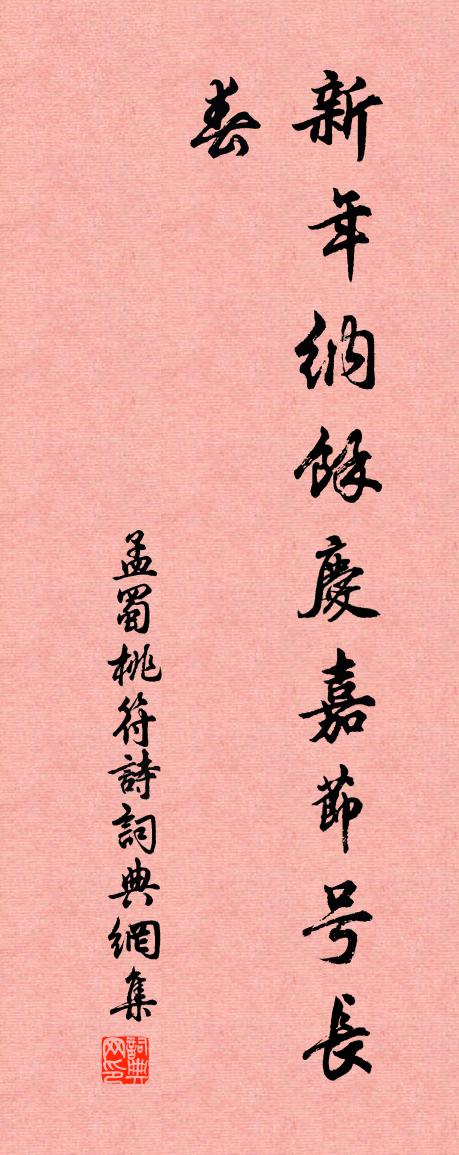 新年納餘慶嘉節号長
春
孟蜀桃符詩詞典網集
詞典网印